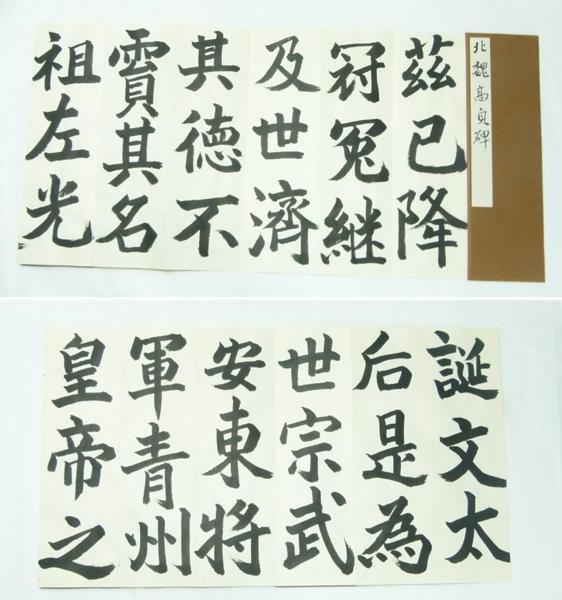 北魏高貞碑
茲已降
冠冕継
及世濟
其德不
賈其名
祖左光
誕文太
后是為
世宗武
安東將
軍青州
皇帝之